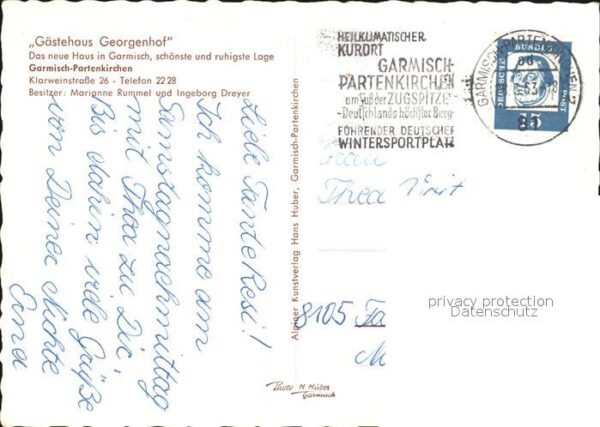 „Gästehaus Georgenhof"
Das neue Haus in Garmisch, schönste und ruhigste Lage
Garmisch-Partenkirchen
Klarweinstraße 26 - Telefon 22 28
Besitzer: Marianne Rummel und Ingeborg Dreyer
Liebe Tante Resi!
Ich komme am
Samstagnachmittag
mit Thea zu Dir
Bis dahin viele Grüße
von Deiner Nichte
Erna
Alpiner Kunstverlag Hans Huber, Garmisch-Partenkirchen
Photo H. Huber
Garmisch
HEILKLIMATISCHER
KURORT
GARMISCH-
PARTENKIRCHEN
am Fuß der ZUGSPITZE
-Deutschlands höchster Berg-
FÜHRENDER DEUTSCHER
WINTERSPORTPLATZ
GARMISCH-PARTENKIRCHEN
DEUTSCHE
BUNDES
POST
15
Frau
Thea
8105 Fa
M
privacy protection
Datenschutz